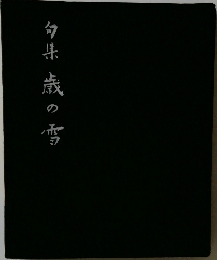 句集 歳の雪